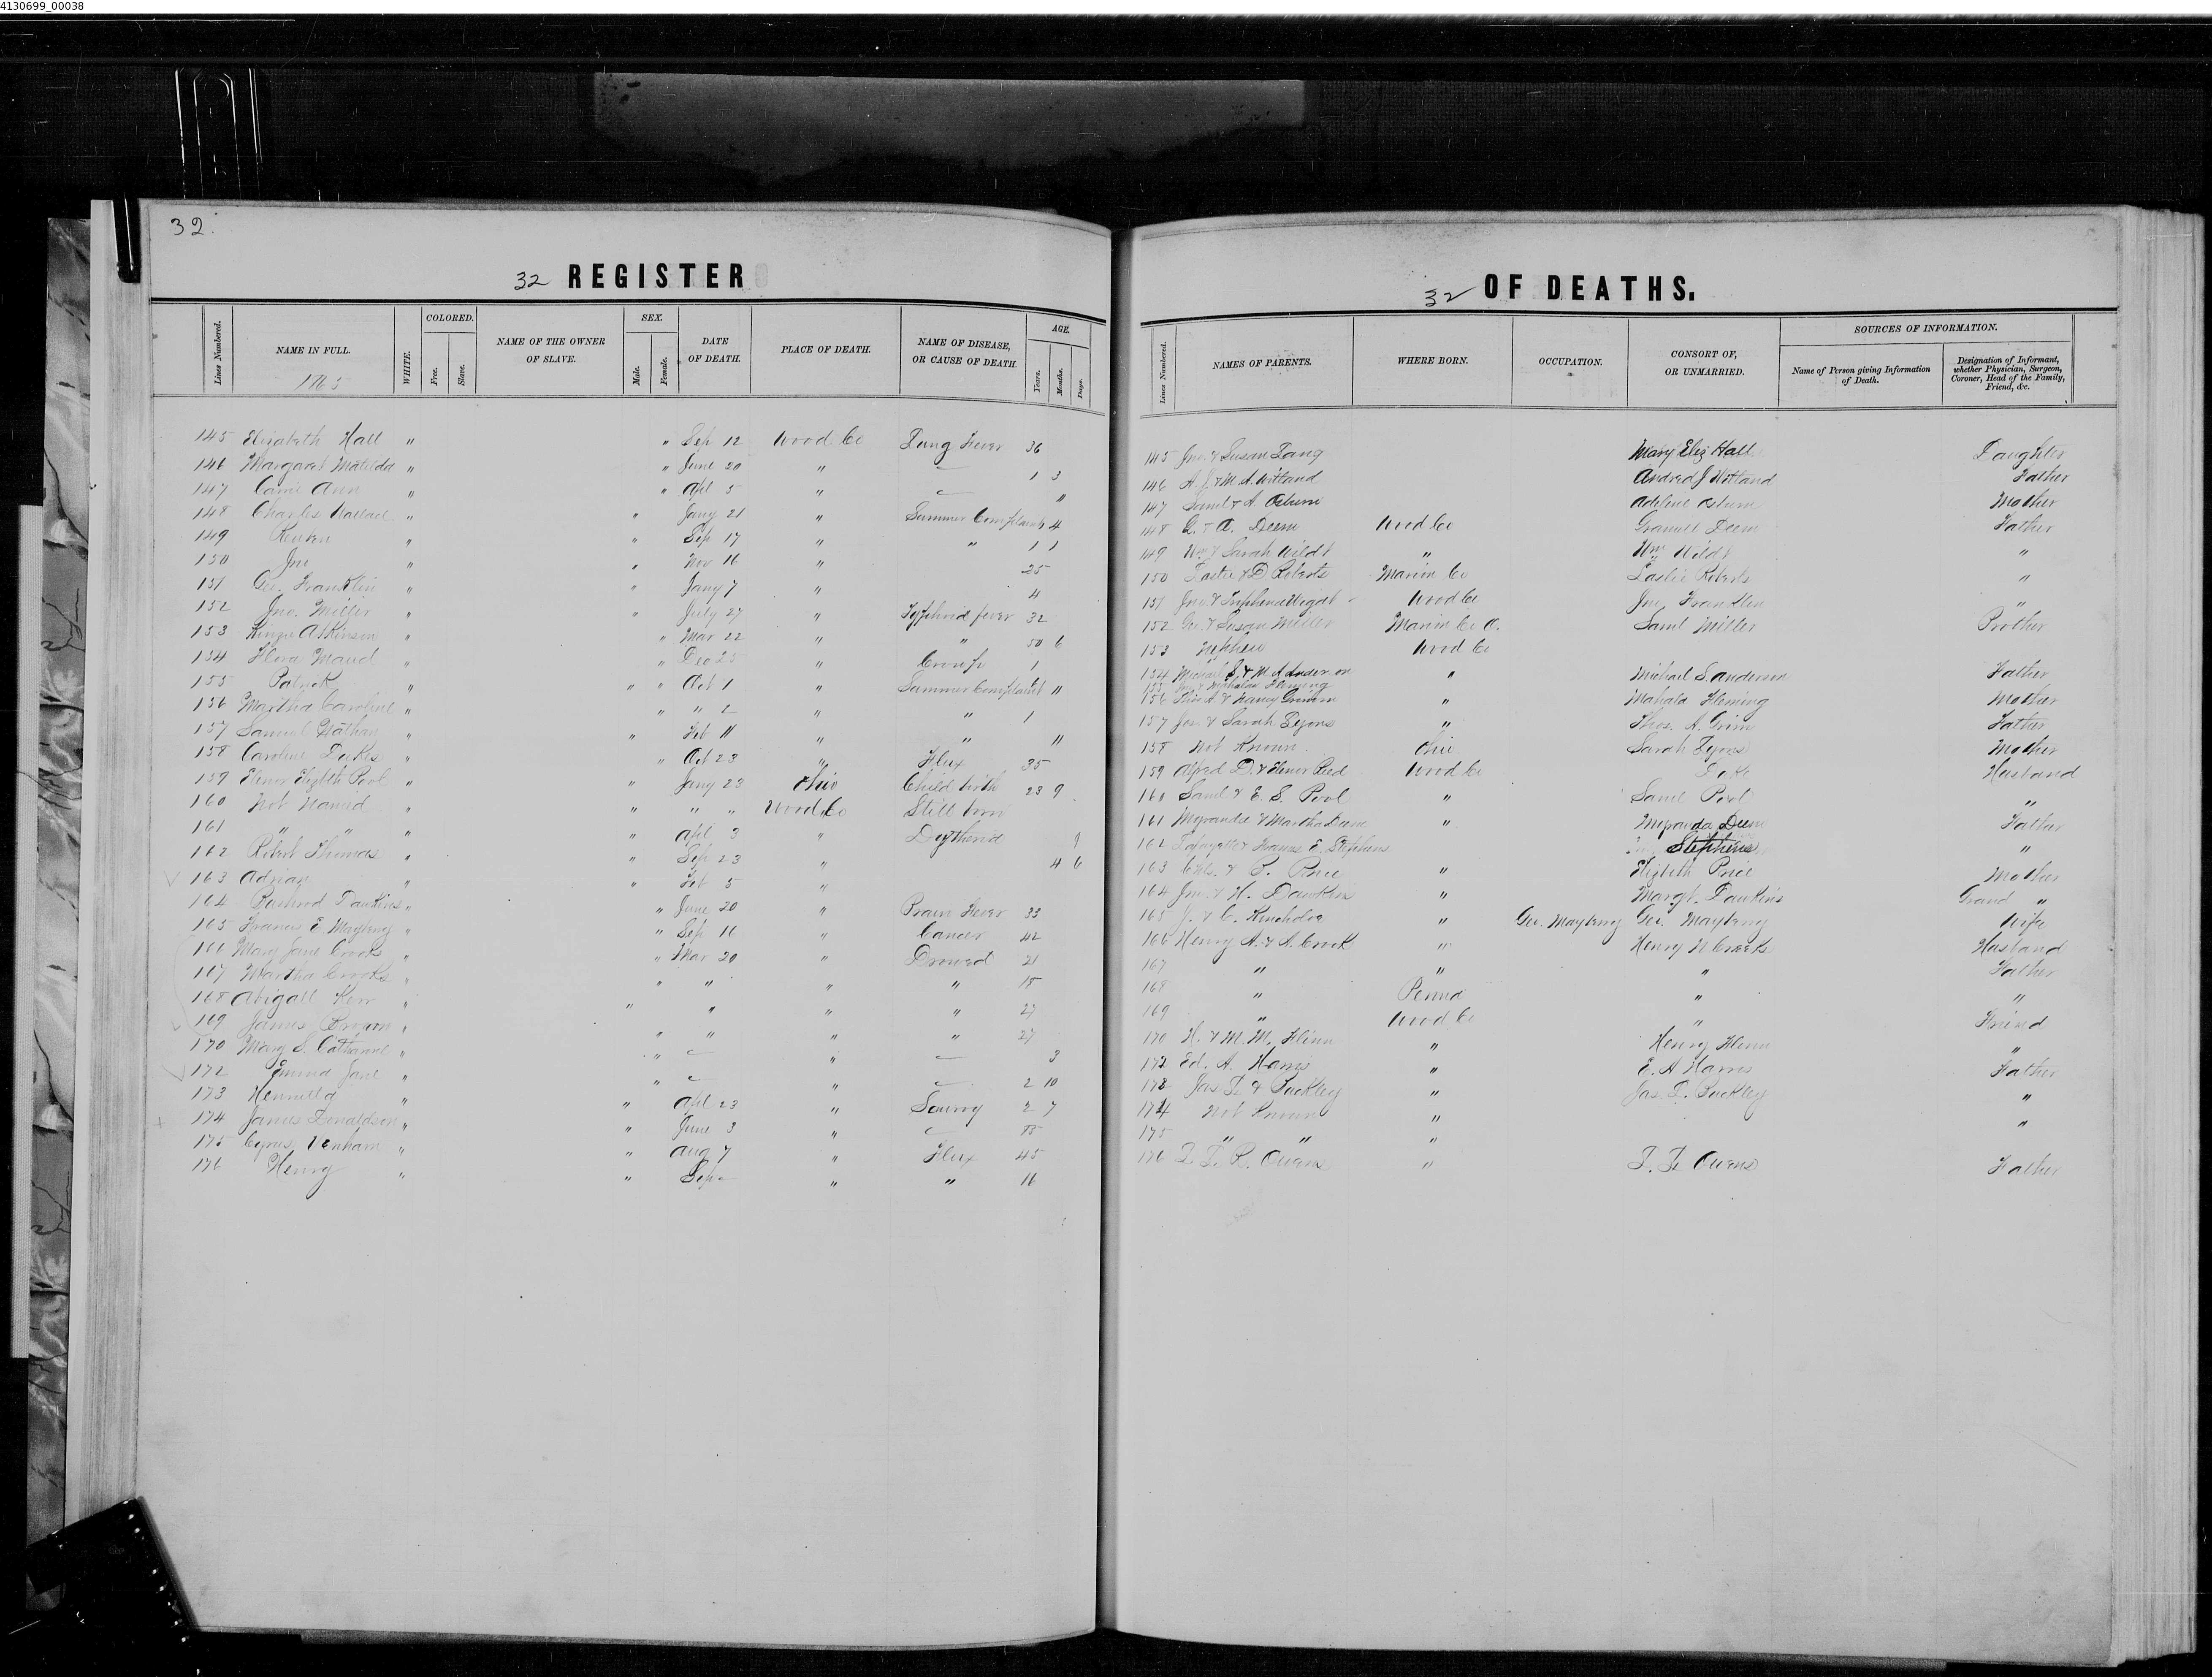 4130699_00038
32.
32 REGISTER
Lines Numbered.
NAME IN FULL.
WHITE.
COLORED.
Free.
Slave.
NAME OF THE OWNER OF SLAVE.
SEX.
Male.
Female.
DATE OF DEATH.
PLACE OF DEATH.
NAME OF DISEASE, OR CAUSE OF DEATH.
AGE.
Years.
Months.
Days.
145 Elizabeth Hall " " Sep 12 Wood Co Lung Fever 36
146 Margaret Matilda " " June 20 " 1 3
147 Carrie Ann " " Apl 5 " "
148 Charles Wallace " " Jany 21 " Summer Complaint 4
149 Reuben " " Sep 17 " " 1 1
150 Jno " " Nov 16 " 25
151 Geo. Franklin " " Jany 7 " 4
152 Jno. Miller " " July 27 " Typhoid fever 32
153 Atkinson " " Mar 22 " " 50 6
154 Flora Maud " " Dec 25 " Croup 1
155 Patrick " " " Oct 1 " Summer Complaint "
156 Martha Caroline " " " 2 " " 1
157 Samuel Nathan " " Feb 11 " " "
158 Caroline " " Oct 23 " Flux 35
159 Elenor Elizbth Pool " " Jany 23 Ohio Child birth 23 9
160 Not Named " " " " Wood Co Still born
161 " " " " Apl 3 " Dyptheria 9
162 Robert Thomas " " Sep 23 " 4 6
163 Adrian " " Feb 5 "
164 Dawkins " " June 20 " Brain Fever 33
165 Frances E. Mayberry " " Sep 16 " Cancer 42
166 Mary Jane Crooks " " Mar 20 " Drowned 21
167 Martha Crooks " " " " " 18
168 Abigail Kerr " " " " " 27
169 James Brown " " " " " 27
170 Mary S. Catharine " " " 3
172 Emma Jane " " " 2 10
173 Henrietta " " Apl 23 " Scurvy 2 7
174 James Donaldson " " June 3 "
175 Cyrus Venham " " Aug 7 " Flux 45
176 Henry " " Sep " " 16
32 OF DEATHS.
Lines Numbered.
NAMES OF PARENTS.
WHERE BORN.
OCCUPATION.
CONSORT OF, OR UNMARRIED.
SOURCES OF INFORMATION.
Name of Person giving Information of Death.
Designation of Informant, whether Physician, Surgeon, Coroner, Head of the Family, Friend, &c.
145 Jno. & Susan Lang Mary Eliz Hall Daughter
146 A. J. & M. A. Witland Andred J Witland Father
147 Saml & A. Osburn Adeline Osburn Mother
148 G. & A. Deem Wood Co Granvill Deem Father
149 Wm & Sarah Wildt " Wm Wildt "
150 Laslie & D. Roberts Marion Co Laslie Roberts "
151 Jno. & Wood Co Jno Franklin "
152 Geo. & Susan Miller Marion Co O. Saml Miller Brother
153 Wood Co
154 Michael S. & M. A Anderson " Michael S. Anderson Father
155 Jno & Mahala Fleming
156 Thos A & Nancy Grimm " Mahala Fleming Mother
157 Jos. & Sarah " Thos. A. Grim Father
158 Not Known Ohio Sarah Mother
159 Alfred D. & Elenor Reed Wood Co Husband
160 Saml & E. E. Pool " Saml Pool "
161 Myrandie & Martha Deem " Myranda Deem Father
162 Lafayette & Frances E. Stephens Stephens "
163 Chs. & B. Price " Elizbeth Price Mother
164 Jno. & H. Dawkin " Margt. Dawkins Grand "
165 J. & C. Kincheloe " Geo. Mayberry Geo. Mayberry Wife
166 Henry A. & A. Crook " Henry N Crooks Husband
167 " " " Father
168 " Penna " "
169 " Wood Co " Friend
170 H. & M. M. Flinn " Henry Flinn "
172 Ed. A. Harris " E. A Harris Father
173 Jas. F. & Buckley " Jas. F. Buckley "
174 Not Known " "
175 " " "
176 T. F. R. Owens " T. F. Owens Father